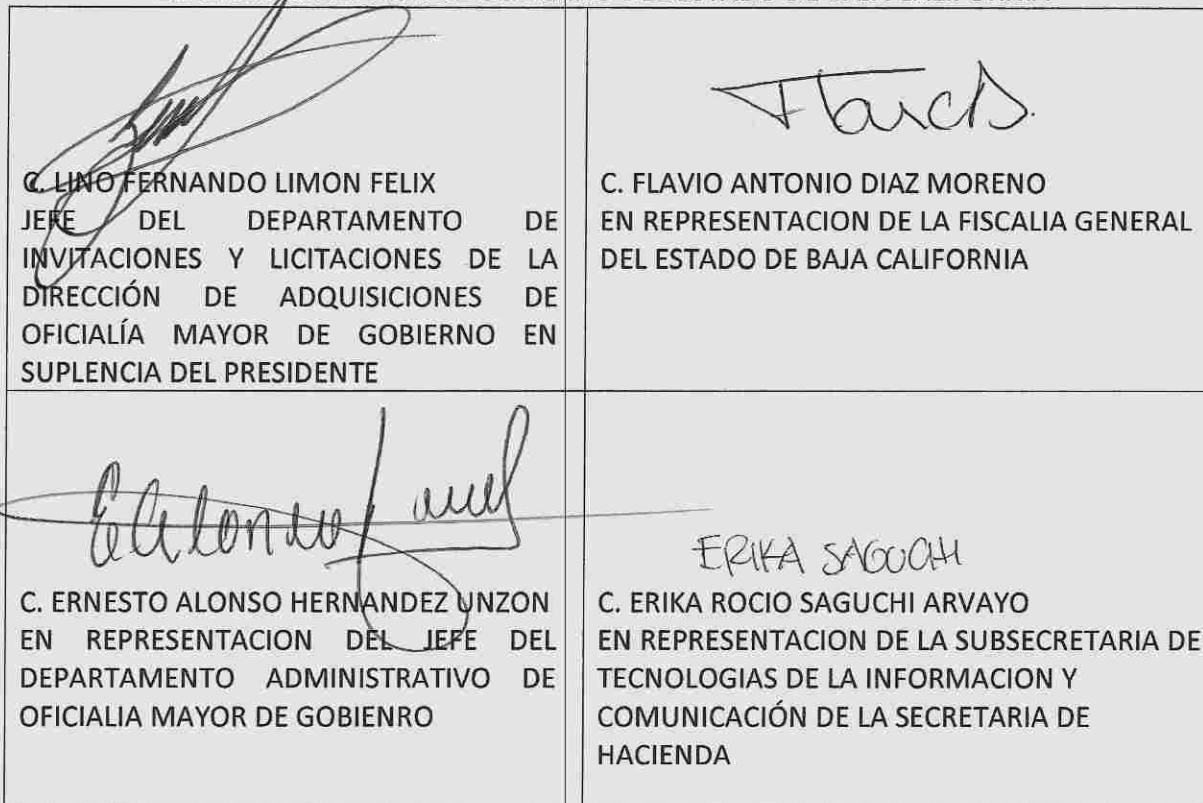 C. LINO FERNANDO LIMON FELIX
JEFE DEL DEPARTAMENTO DE
INVITACIONES Y LICITACIONES DE LA
DIRECCIÓN DE ADQUISICIONES DE
OFICIALÍA MAYOR DE GOBIERNO EN
SUPLENCIA DEL PRESIDENTE
C. FLAVIO ANTONIO DIAZ MORENO
EN REPRESENTACION DE LA FISCALIA GENERAL
DEL ESTADO DE BAJA CALIFORNIA
C. ERNESTO ALONSO HERNANDEZ UNZON
EN REPRESENTACION DEL JEFE DEL
DEPARTAMENTO ADMINISTRATIVO DE
OFICIALIA MAYOR DE GOBIENRO
ERIKA SAGUCHI
C. ERIKA ROCIO SAGUCHI ARVAYO
EN REPRESENTACION DE LA SUBSECRETARIA DE
TECNOLOGIAS DE LA INFORMACION Y
COMUNICACIÓN DE LA SECRETARIA DE
HACIENDA